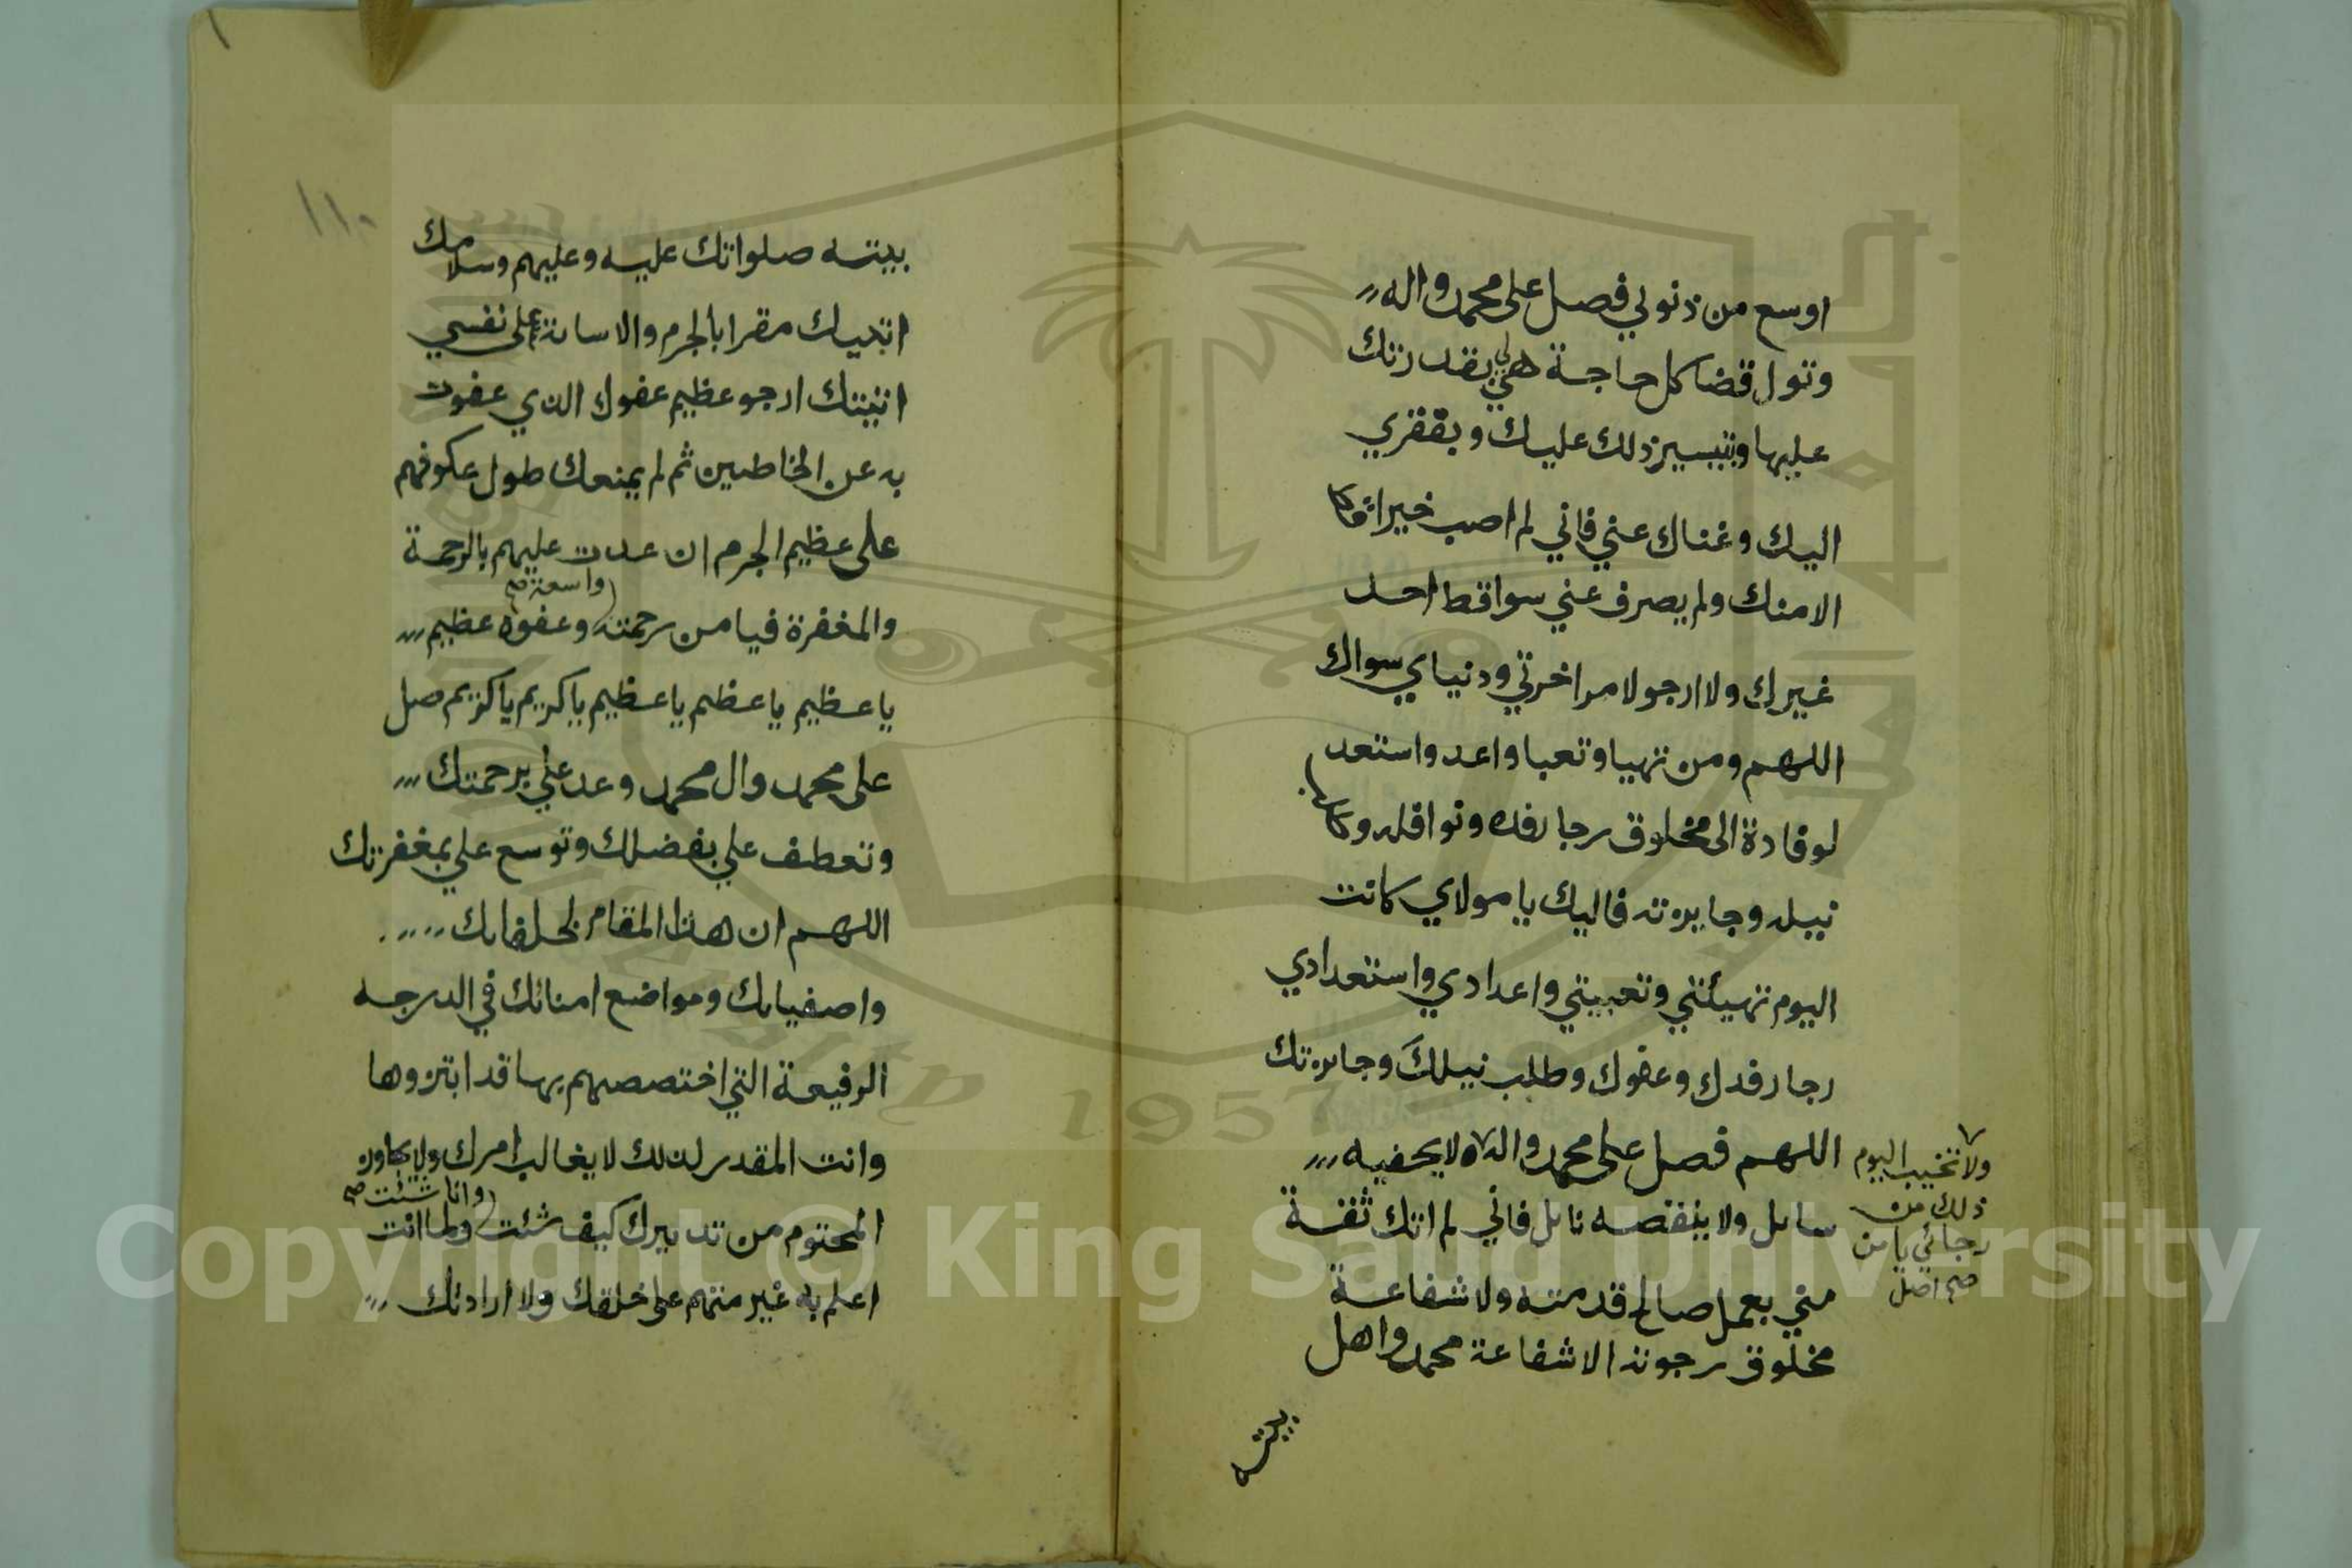 اوسع من ذنوبي فصل على محمد واله
وتول قضا كل حاجة هي لي بقدرتك
عليها وتيسير ذلك عليك وبفقري
اليك وغناك عني فاني لم اصب خيرا قط
الا منك ولم يصرف عني سوا قط احد
غيرك ولا ارجو لامر اخرتي ودنياي سواك
اللهم ومن تهيا وتعبا واعد واستعد
لوفادة الى مخلوق رجا رفده ونوافله وطلب
نيله وجايزته فاليك يا مولاي كانت
اليوم تهيئتي وتعبيتي واعدادي واستعدادي
رجا رفدك وعفوك وطلب نيلك وجايزتك
اللهم فصل على محمد واله لا يحفيه
سايل ولا ينقصه نايل فاني لم اتك ثقة
مني بعمل صالح قدمته ولا شفاعة
مخلوق رجوته الا شفاعة محمد واهل
ولا تخيب اليوم
ذلك من
رجائي يا من
صح اصل
بيته
١١٠
بيته صلواتك عليه وعليهم وسلامك
اتيتك مقرا بالجرم والاساة على نفسي
اتيتك ارجو عظيم عفوك الذي عفوت
به عن الخاطين ثم لم يمنعك طول عكوفهم
على عظيم الجرم ان عدت عليهم بالرحمة
واسعة صح
والمغفرة فيا من رحمته وعفوه عظيم
يا عظيم يا عظيم يا عظيم يا كريم يا كريم صل
على محمد وال محمد وعد علي برحمتك
وتعطف علي بفضلك وتوسع علي بمغفرتك
اللهم ان هذا المقام لخلفايك
واصفيايك ومواضع امنائك في الدرجه
الرفيعة التي اختصصهم بها قد ابتزوها
وانت المقدر لذلك لا يغالب امرك ولا يجاوز
وانا شئت صح
المحتوم من تدبيرك كيف شئت ولما انت
اعلم به غير متهم على خلقك ولا ارادتك
Copyright © King Saud University
1957